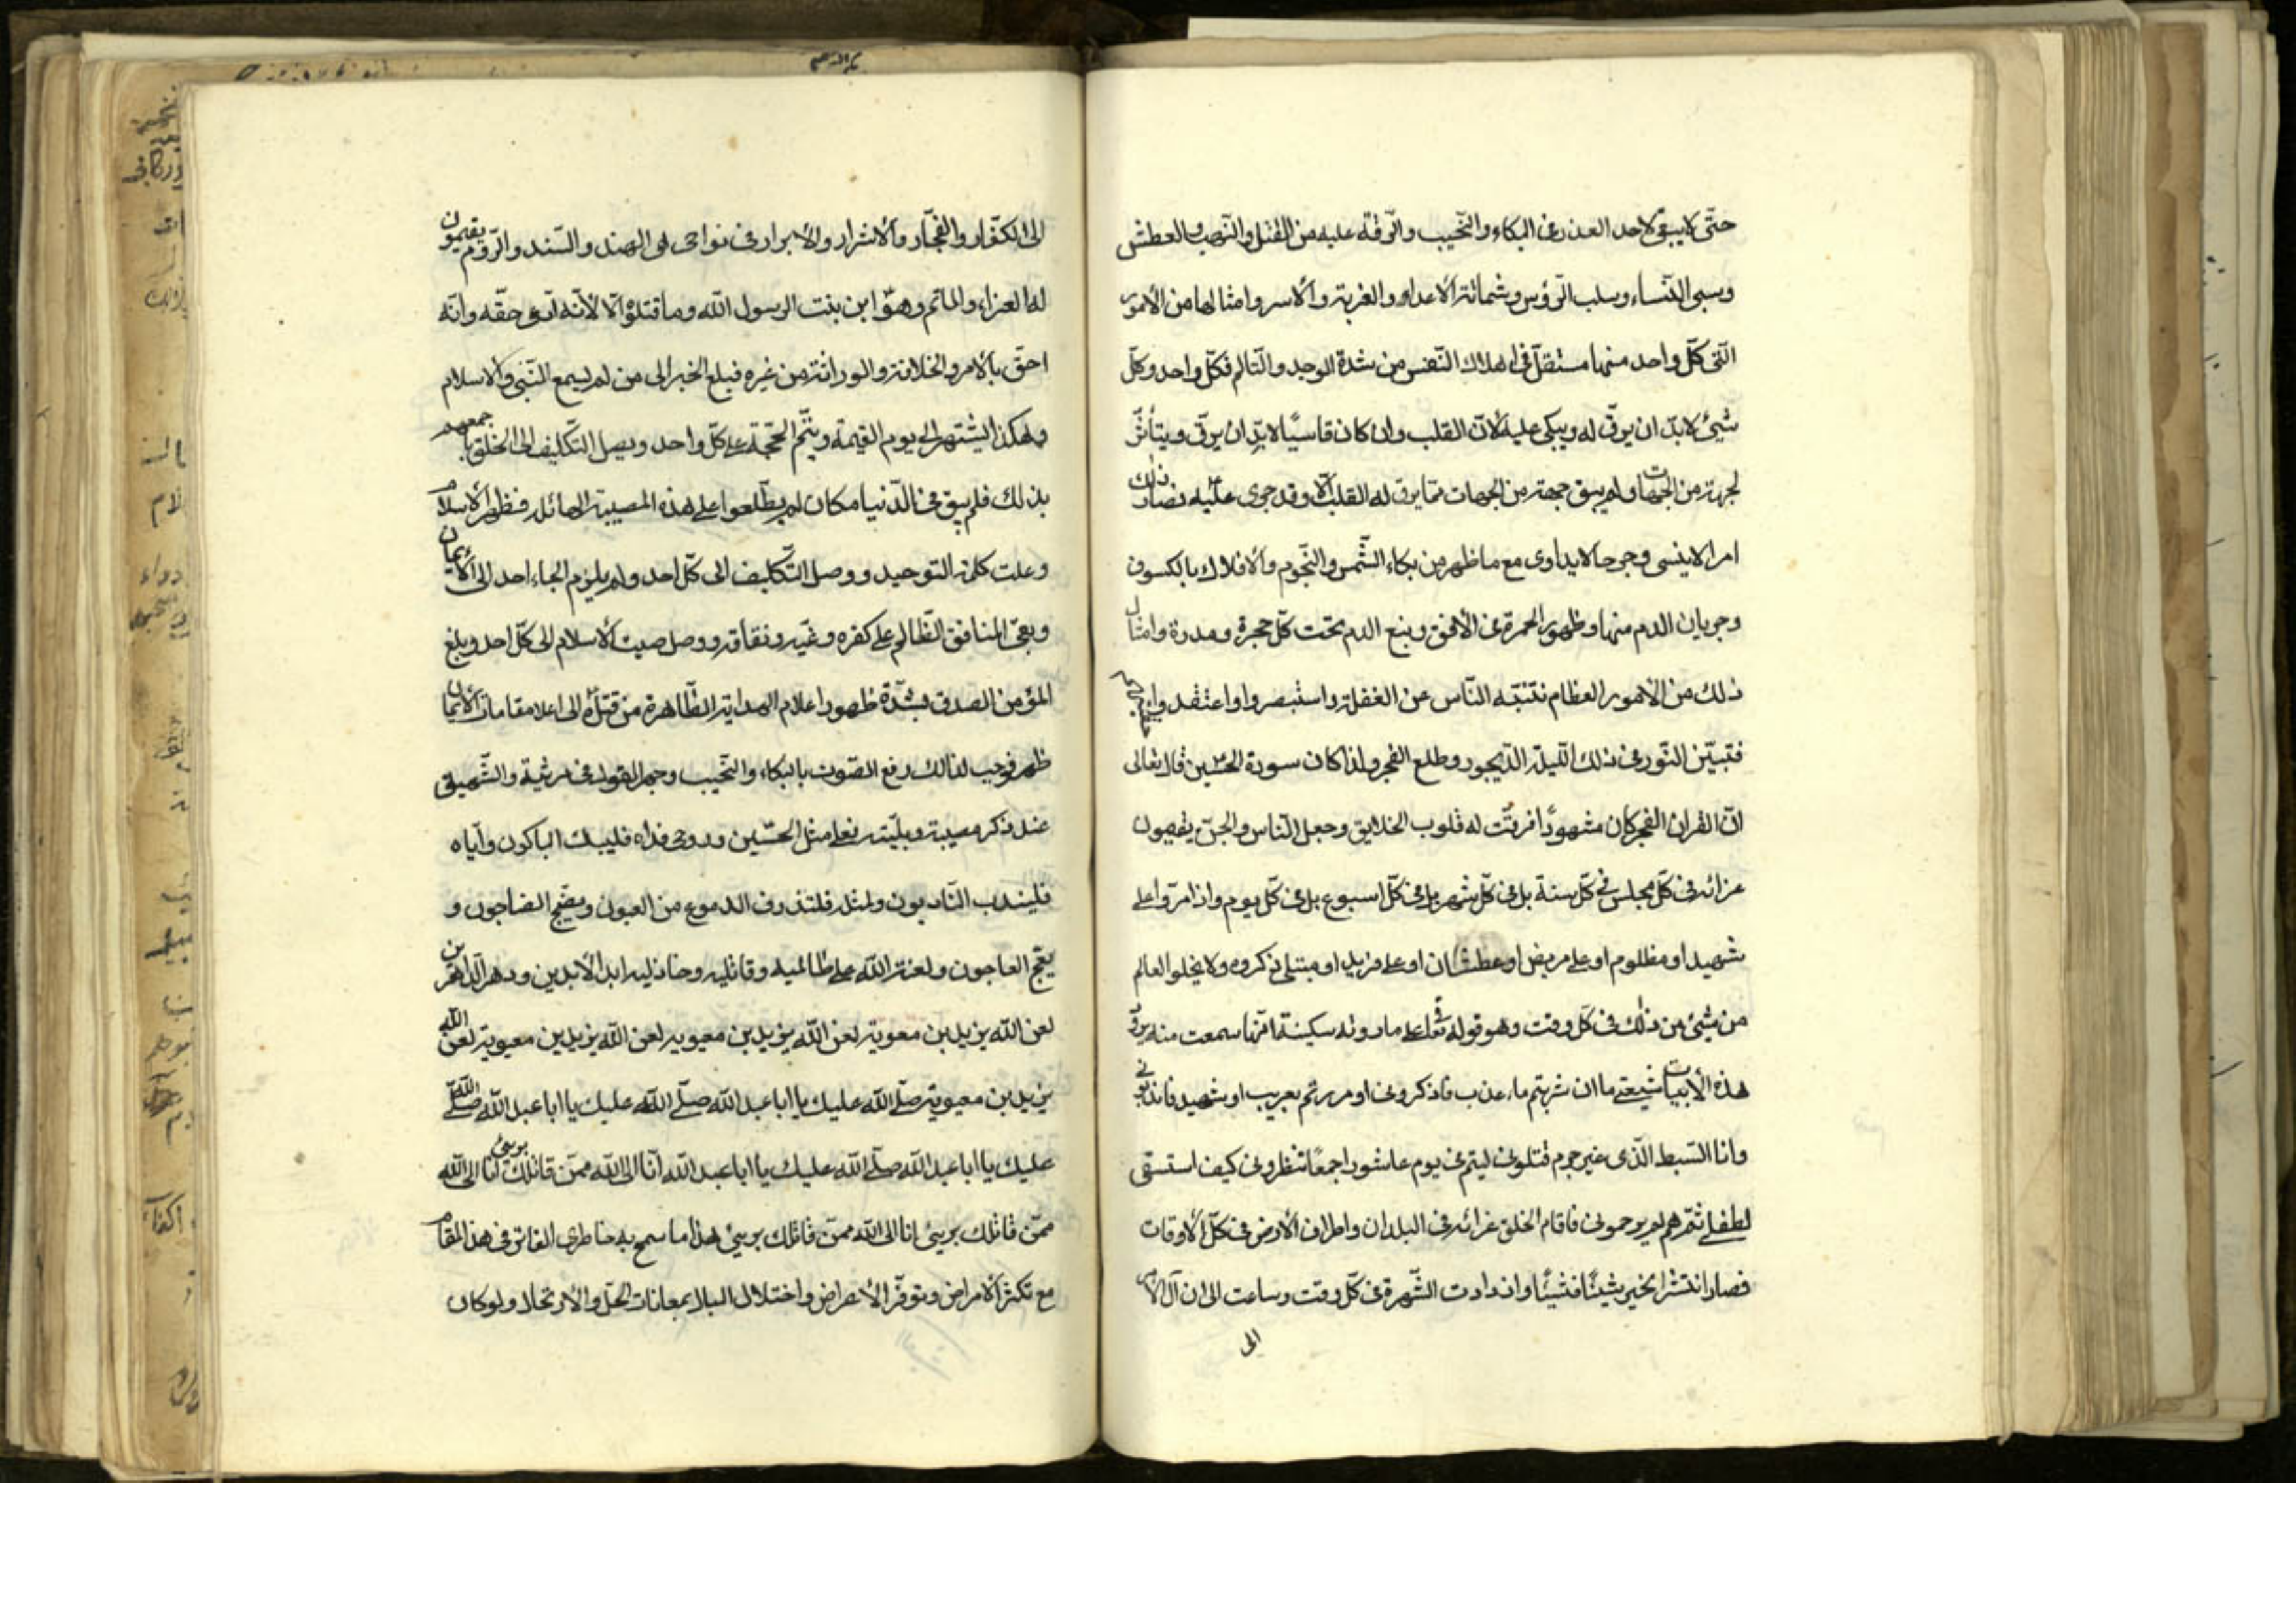 حتّی لا یبقی لاحد العذر فی البکاء والنّحیب والرّقّة علیه من القتل والنّهب والعطش
وسبی النّساء وسلب الرّؤس وشماتة الاعداء والغربة والاسر وامثالها من الامور
الّتی کلّ واحد منها مستقلّ فی اهلاک النّفس من شدة الوجد والتّالم فکلّ واحد وکلّ
شیئ لابدّ ان یرقّ له ویبکی علیه لانّ القلب وان کان قاسیًا لابدّ ان یرقّ ویتأثّر
لجهة من الجهات ولم یبق جهة من الجهات ممّا یرق له القلب الّا وقد جری علیه فصار ذلک
امرا لا ینسی وجرحا لا یداوی مع ما ظهر من بکاء الشّمس والنّجوم والافلاک بالکسوف
وجریان الدم منها وظهور الحمرة فی الافق ونبع الدم تحت کلّ حجرة ومدرة وامثال
ذلک من الامور العظام تنبّه النّاس عن الغفلة واستبصروا واعتقدوا
فتبیّن النّور فی ذلک اللّیلة الدّیجور وطلع الفجر ولذا کان سورة الفجر سورة الحسین قال تعالی
انّ القران الفجر کان مشهودًا فرقّت له قلوب الخلایق وجعل النّاس والجنّ یقیمون
عزائه فی کلّ مجلس فی کلّ سنة بل فی کلّ شهر بل فی کلّ اسبوع بل فی کلّ یوم واذا مرّوا علی
شهید او مظلوم او علی مریض او عطشان او علی فرید او مبتلی ذکروه ولا یخلو العالم
من شیئ من ذلک فی کلّ وقت وهو قوله علی ما روته سکینة انّها سمعت منه
هذه الأبیات شیعتی ما ان شربتم ماء عذب فاذکرونی او مررتم بغریب او شهید فاندبونی
وانا السّبط الّذی غیر جرم قتلونی لیتم فی یوم عاشورا جمعًا تنظرونی کیف استسقی
لطفلی ثمّ هم لم یرحمونی فاقام الخلق عزائه فی البلدان واطراف الارض فی کلّ الاوقات
فصار انتشر الخبر شیئًا فشیئًا وازدادت الشّهرة فی کلّ وقت وساعت الی ان آل الامر
الی
الی الکفّار والفجّار والاشرار والابرار فی نواحی الهند والسّند والرّوم یقیمون
له العزاء والماتم وهو ابن بنت الرسول الله وما قتلوه الّا لانّه ادّعی حقّه وانّه
احقّ بالامر والخلافة والوراثة من غیره فبلغ الخبر الی من لم یسمع النّبی والاسلام
وهکذا یشتهر الی یوم القیمة ویتمّ الحجّة علی کلّ واحد ویصل التّکلیف الی الخلق جمعهم
بذلک فلم یبق فی الدّنیا مکان لم یطّلعوا علی هذه المصیبة الهائله فظهر الاسلام
وعلت کلمة التوحید ووصل التّکلیف الی کلّ احد ولم یلزم الجاء احد الی الایمان
وبقی المنافق الظّالم علی کفره وغیّه ونفاقه ووصل صیت الاسلام الی کلّ احد وبلغ
المؤمن الصدق بشدّة ظهور اعلام الهدایة الظّاهرة من قتله الی اعلا مقامات الایمان
ظهر فوجب لذالک رفع الصّوت بالبکاء والنّحیب وجهر القول فی مرثیة والشّهیق
عند ذکر مصیبته وبلیّته فعلی مثل الحسین وروحی فداه فلیبک الباکون وآیاه
فلیندب النّادبون ولمثله فلتذرف الدموع من العیون ویضجّ الضاجون و
یعجّ العاجون ولعنة الله علی ظالمیه وقاتلیه وخاذلیه ابد الابدین ودهر الدّاهرین
لعن الله یزید بن معویة لعن الله یزید بن معویه لعن الله یزید بن معویة لعن الله
یزید بن معویة صلّی الله علیک یا ابا عبدالله صلّی الله علیک یا ابا عبدالله صلّی الله
علیک یا ابا عبدالله صلّی الله علیک یا ابا عبدالله آنا الی الله ممّن قاتلک بریئ انا الی الله
ممّن قاتلک بریئ انا الی الله ممّن قاتلک بریئ هذا ما سمح به خاطری الفاتر فی هذ المقام
مع تکثر الامراض وتوفّر الاعراض واختلال البال بمعانات الحلّ والارتحال ولو کان